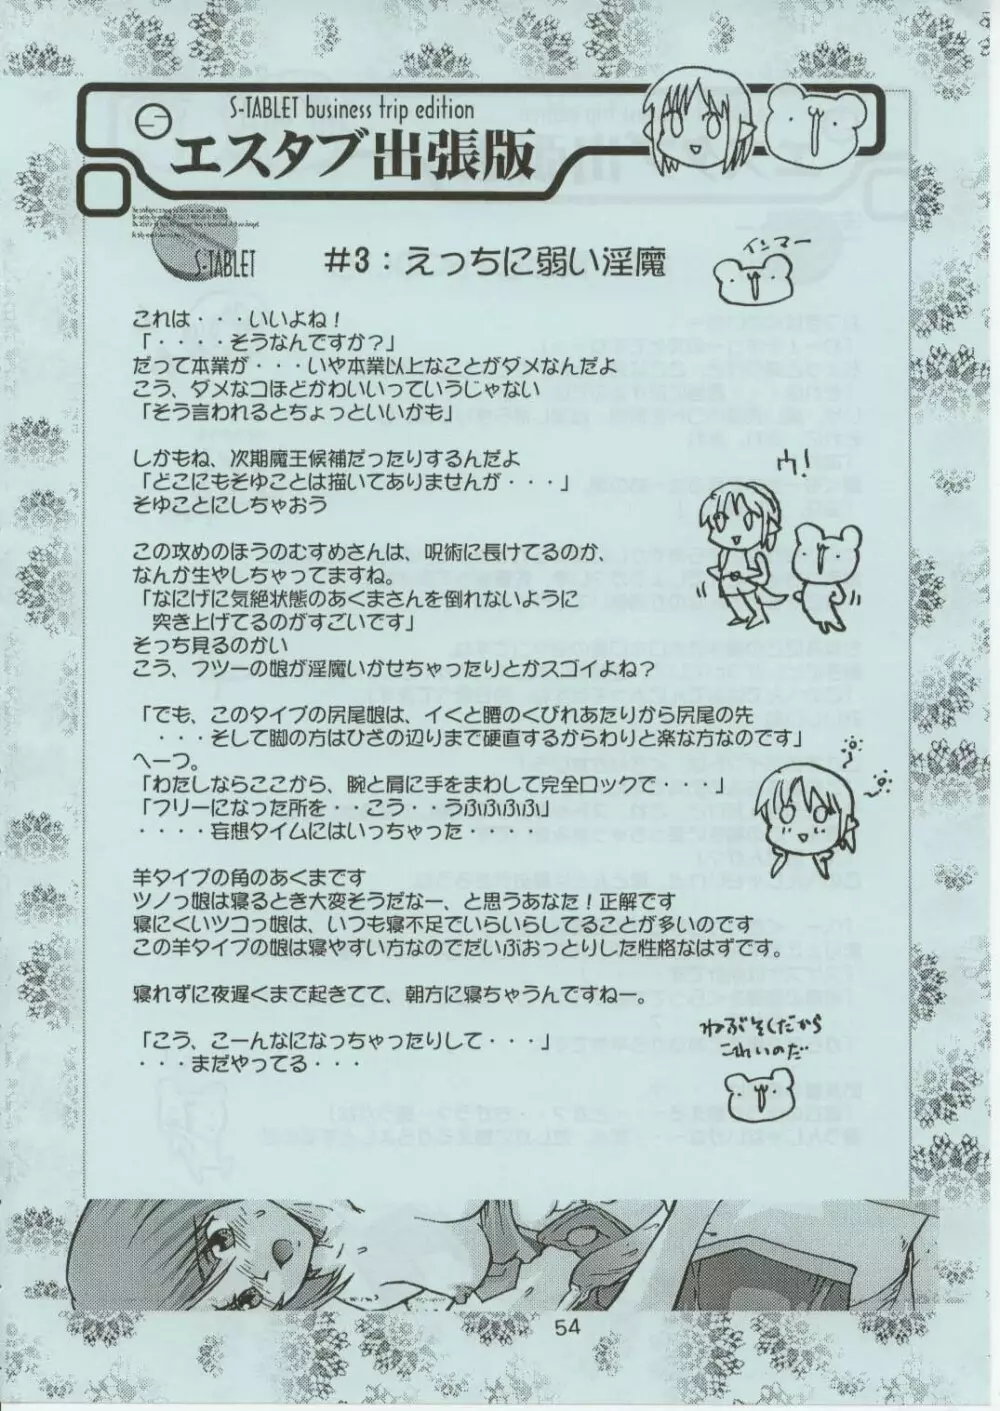 S-TABLET business trip edition
エスタブ出張版
S-TABLET
#3：えっちに弱い淫魔
インマー
これは・・・いいよね！
「・・・・そうなんですか？」
だって本業が・・・いや本業以上なことがダメなんだよ
こう、ダメなコほどかわいいっていうじゃない
「そう言われるとちょっといいかも」
しかもね、次期魔王候補だったりするんだよ
「どこにもそゆことは描いてありませんが・・・」
そゆことにしちゃおう
ウ！
この攻めのほうのむすめさんは、呪術に長けてるのか、
なんか生やしちゃってますね。
「なにげに気絶状態のあくまさんを倒れないように
突き上げてるのがすごいです」
そっち見るのかい
こう、フツーの娘が淫魔いかせちゃったりとかスゴイよね？
「でも、このタイプの尻尾娘は、イくと腰のくびれあたりから尻尾の先
・・・そして脚の方はひざの辺りまで硬直するからわりと楽な方なのです」
へーっ。
「わたしならここから、腕と肩に手をまわして完全ロックで・・・・」
「フリーになった所を・・こう・・うふふふふ」
・・・・妄想タイムにはいっちゃった・・・・・
羊タイプの角のあくまです
ツノっ娘は寝るとき大変そうだなー、と思うあなた！正解です
寝にくいツコっ娘は、いつも寝不足でいらいらしてることが多いのです
この羊タイプの娘は寝やすい方なのでだいぶおっとりした性格なはずです。
寝れずに夜遅くまで起きてて、朝方に寝ちゃうんですねー。
「こう、こーんなになっちゃったりして・・・・」
・・・まだやってる・・・
ねぶそくだから
こわいのだ
54